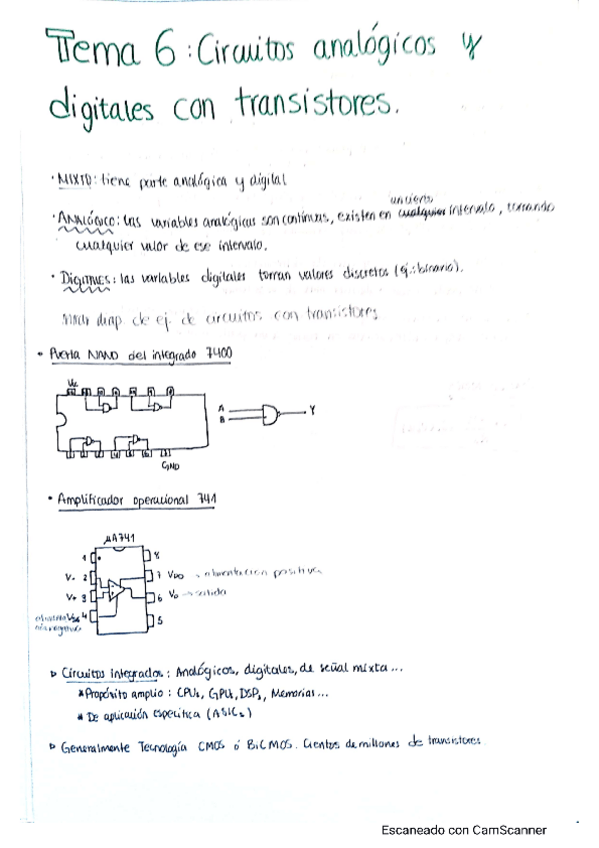 Tema 6: Circuitos analógicos y
digitales con transistores.
· MIXTO: tiene parte analógica y digital
un cierto
· ANALÓGICO: las variables analógicas son continuas, existen en cualquier intervalo, tomando
cualquier valor de ese intervalo.
· DIGITALES: las variables digitales toman valores discretos (ej: binario).
de ej. de circuitos con transistores
· Puerta NAND del integrado 7400
Vcc
A
B
Y
GND
· Amplificador operacional 741
μA741
1
8
V- 2
7 VDD → alimentación positiva
V+ 3
6 Vo → salida
4
5
▷ Circuitos integrados: Analógicos, digitales, de señal mixta...
* Propósito amplio: CPUs, GPUs, DSPs, Memorias...
* De aplicación específica (ASICs)
▷ Generalmente Tecnología CMOS ó BiCMOS. Cientos de millones de transistores
Escaneado con CamScanner